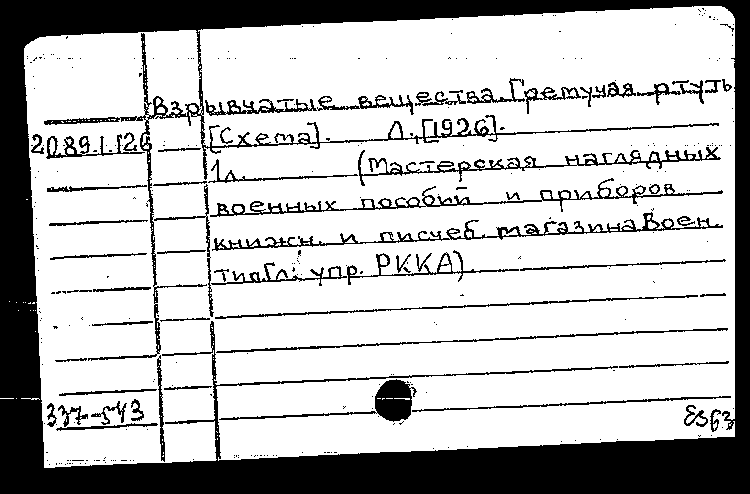 Взрывчатые вещества. Гремучая ртуть
2089.1.126 [Схема]. Л.,[1926].
1л. (Мастерская наглядных
военных пособий и приборов
книжн. и писчеб. магазина Воен.
тип.Гл. упр. РККА).
337-543
Es63